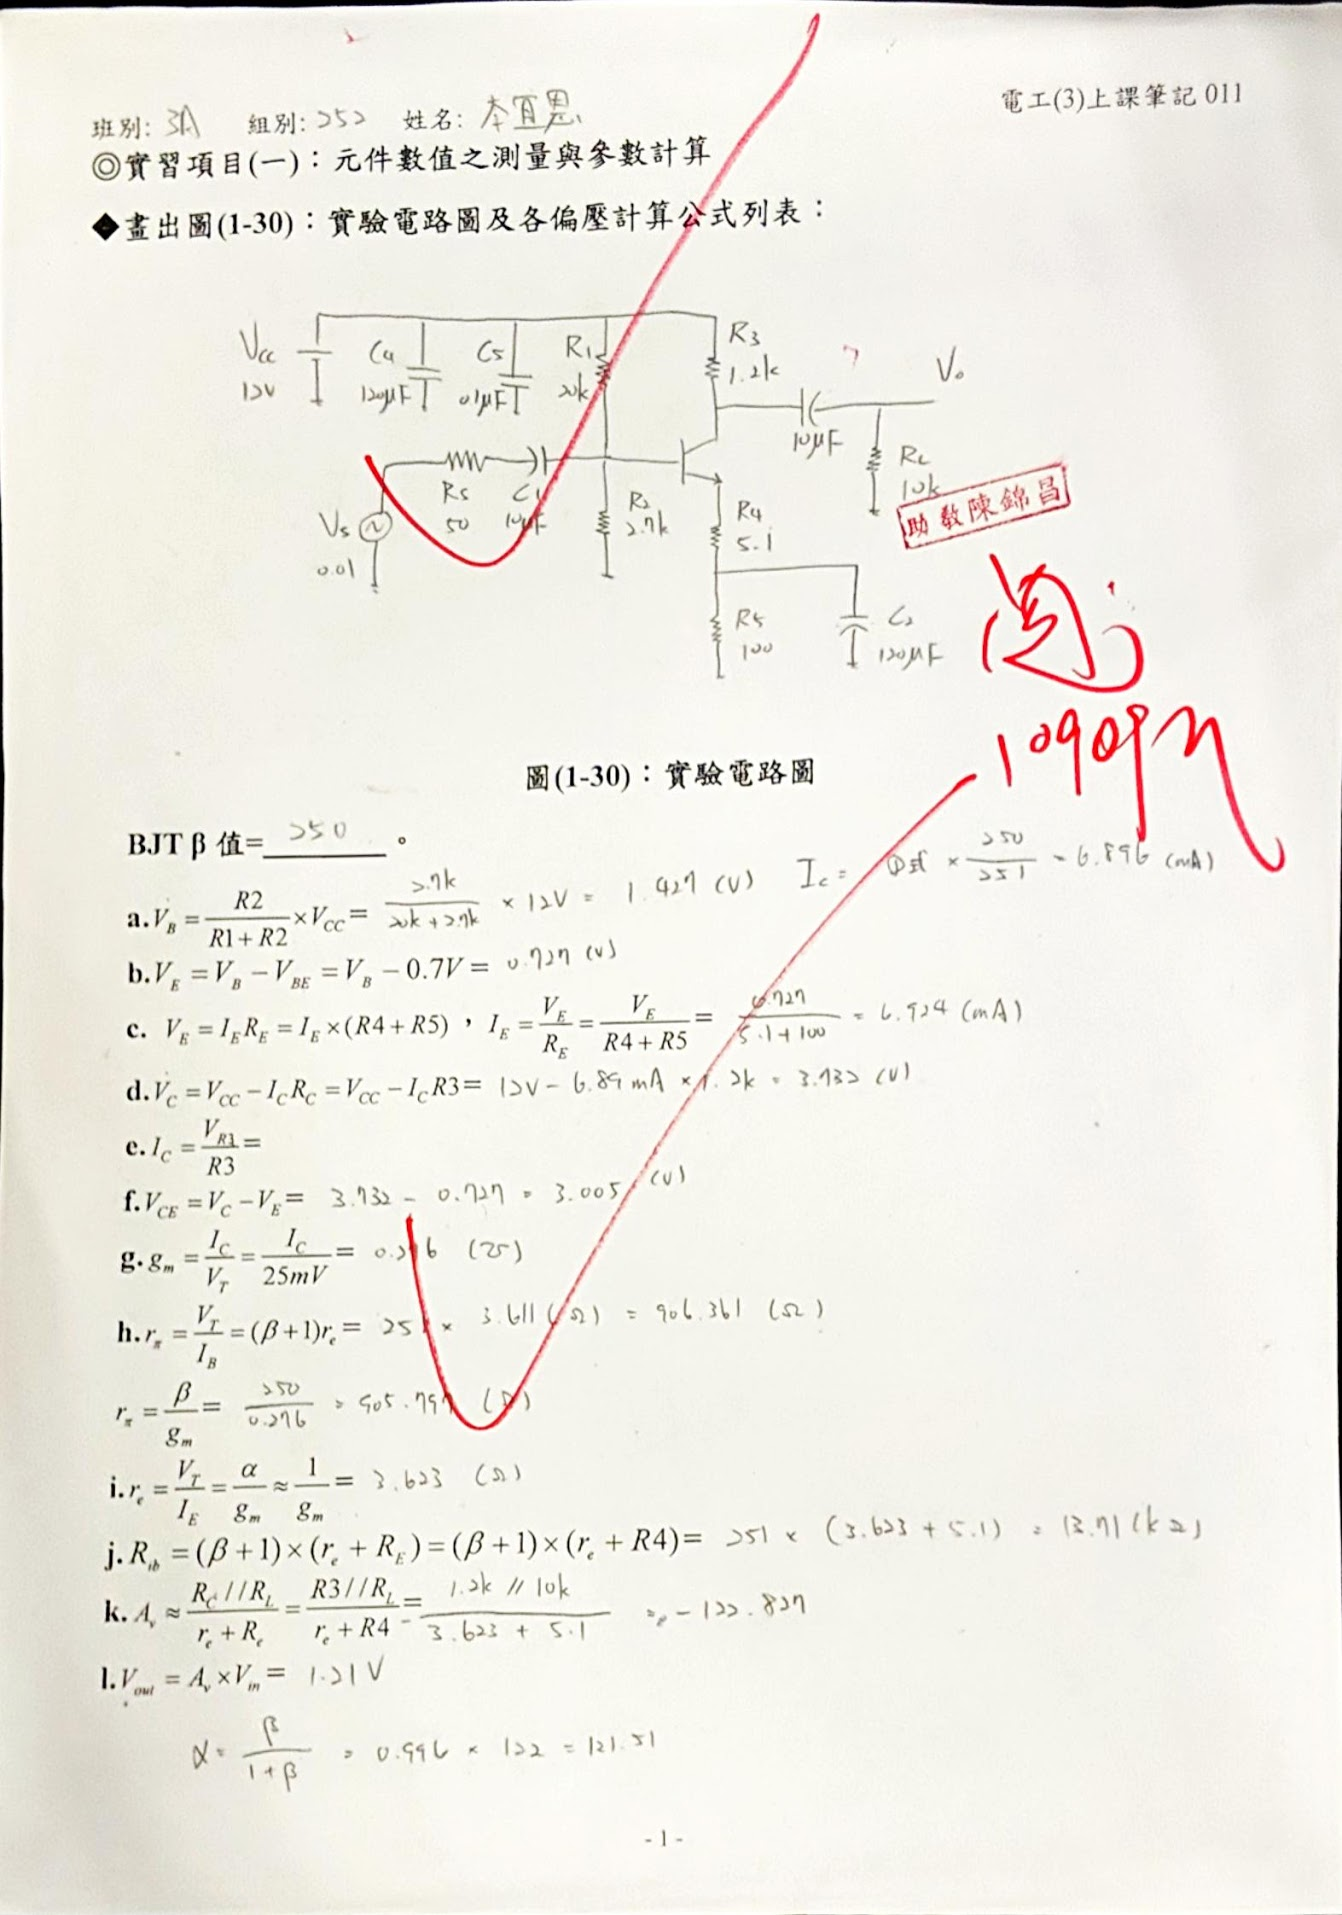 電工(3)上課筆記 011
班別: 3A 組別: 252 姓名: 李宜恩
◎實習項目(一)：元件數值之測量與參數計算
◆畫出圖(1-30)：實驗電路圖及各偏壓計算公式列表：
Vcc 12V C4 120μF C5 0.1μF R1 20k R3 1.2k Vo
10μF RL 10k
Vs 0.01 Rs 50 C1 10μF R2 2.7k R4 5.1
R5 100 C2 120μF
助教陳錦昌
圖(1-30)：實驗電路圖
BJT β 值= 250 。
Ic = ①式 × 250/251 = 6.896 (mA)
a. V_B = R2/(R1+R2) ×V_CC = 2.7k/(20k+2.7k) × 12V = 1.427 (V)
b. V_E = V_B − V_BE = V_B − 0.7V = 0.727 (V)
c. V_E = I_E R_E = I_E ×(R4+R5)，I_E = V_E/R_E = V_E/(R4+R5) = 0.727/(5.1+100) = 6.924 (mA)
d. V_C = V_CC − I_C R_C = V_CC − I_C R3 = 12V − 6.89mA × 1.2k = 3.732 (V)
e. I_C = V_R3/R3 =
f. V_CE = V_C − V_E = 3.732 − 0.727 = 3.005 (V)
g. g_m = I_C/V_T = I_C/25mV = 0.276 (℧)
h. r_π = V_T/I_B = (β+1)r_e = 251 × 3.611 (Ω) = 906.361 (Ω)
r_π = β/g_m = 250/0.276 = 905.797 (Ω)
i. r_e = V_T/I_E = α/g_m ≈ 1/g_m = 3.623 (Ω)
j. R_ib = (β+1)×(r_e + R_E) = (β+1)×(r_e + R4) = 251 × (3.623 + 5.1) = 13.71 (kΩ)
k. A_v ≈ R_C//R_L/(r_e + R_e) = R3//R_L/(r_e + R4) = − 1.2k // 10k/(3.623 + 5.1) = −122.827
l. V_out = A_v ×V_in = 1.21V
α = β/(1+β) = 0.996 × 122 = 121.51
- 1 -